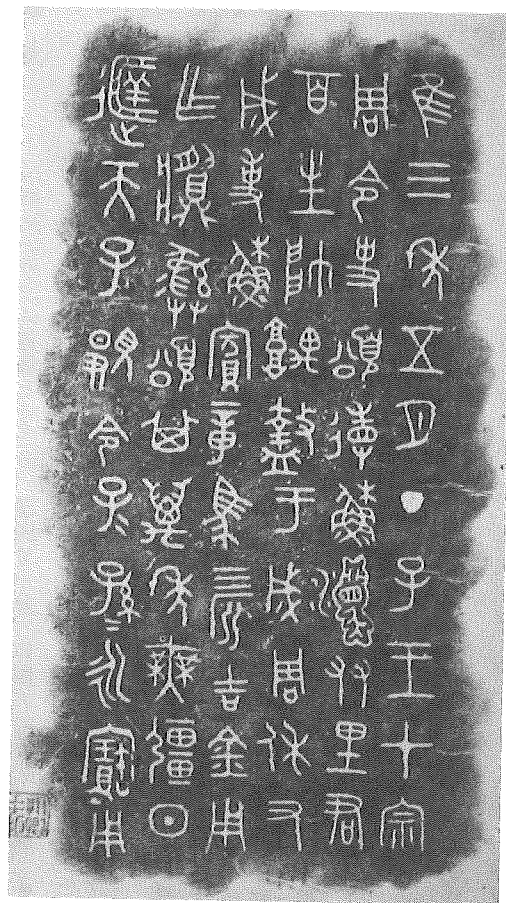 隹三年五月丁子王才宗
周令史頌省蘇友里君
百生帥堣盩于成周休又
成事蘇賓章馬四匹吉金用
乍𩰬彝頌其萬年無疆日
天子顯令子＝孫＝永寶用